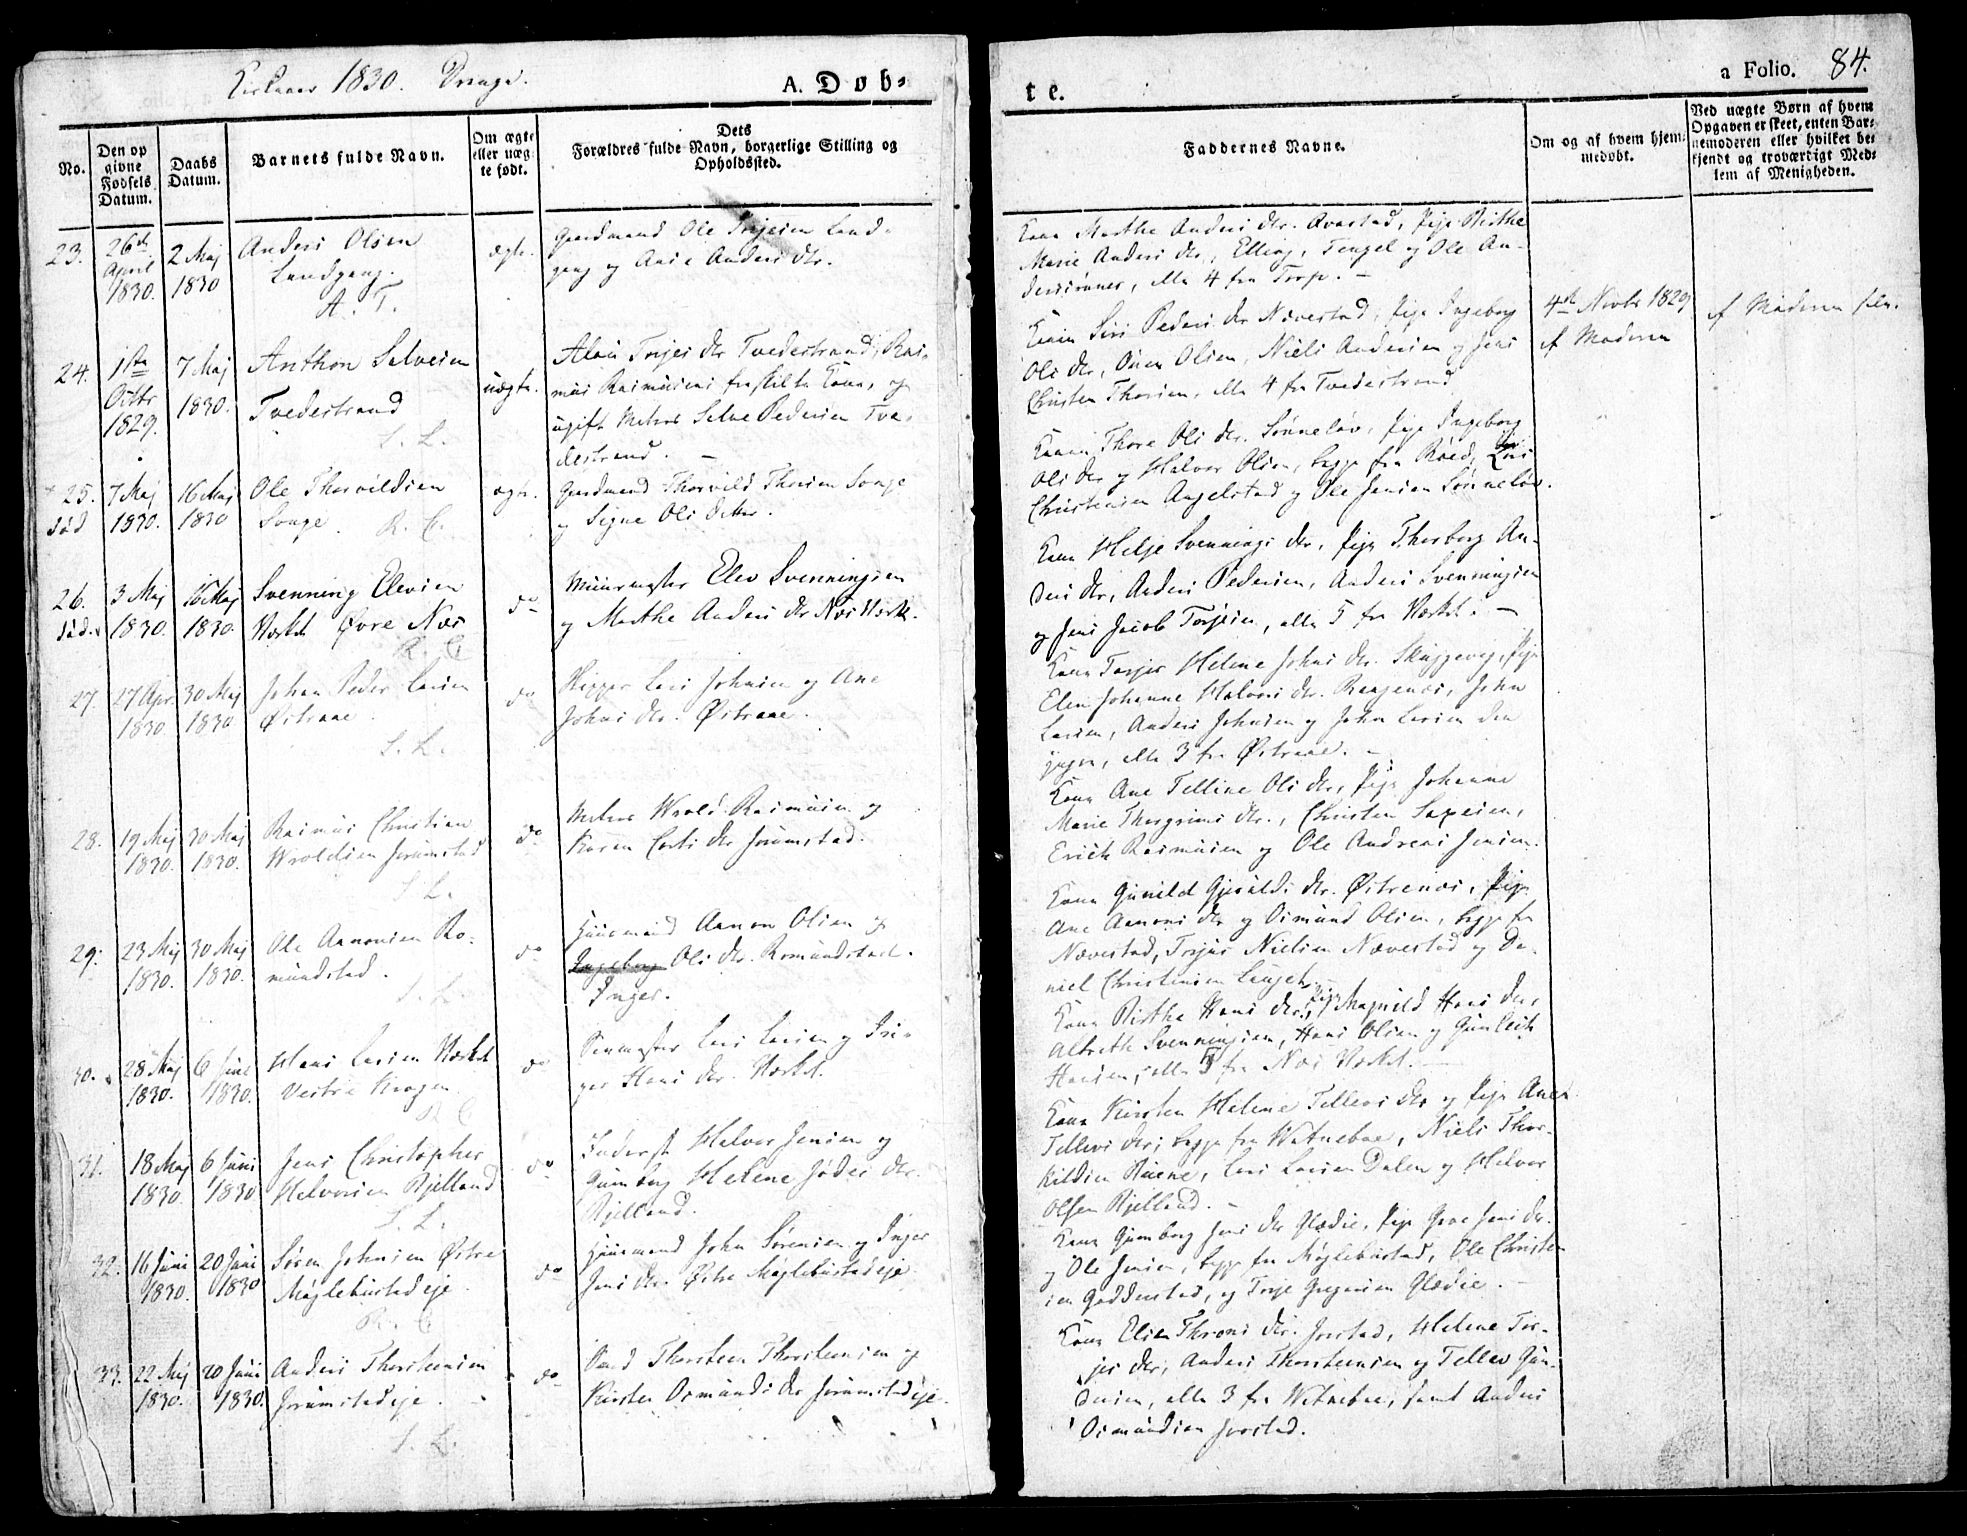 Kirkeaar 1830. Drenge.
A. Døb-
te.
a Folio. 84.
No.
Den op
givne
Fødsels
Datum.
Daabs
Datum.
Barnets fulde Navn.
Om ægte
eller uæg-
te født.
Dets
Forældres fulde Navn, borgerlige Stilling og
Opholdssted.
Faddernes Navne.
Om og af hvem hjem-
medøbt.
Ved uægte Børn af hvem
Opgaven er skeet, enten Bar-
nemoderen eller hvilket be-
kjendt og troværdigt Med-
lem af Menigheden.
23.
26de
April
1830.
2 Maj
1830
Anders Olsen
Landgang.
A. T.
ægte.
Gaardmand Ole Terjesen Land-
gang og Anne Anders dtr.
Kone Marthe Anders dtr. Avestad, Pige Birthe
Marie Anders dtr, Elling, Tengel og Ole An-
derssønner, alle 4 fra Torp. -
24.
1ste
Octbr
1829.
7 Maj
1830.
Anthon Selvesen
Tvedestrand
S. L.
uægte.
Terjes dtr Tvedestrand, Ras-
mus Rasmusens fraskilte Kone, og
ugift Matros Selve Pedersen Tve-
destrand. -
Konen Siri Peders dtr Næverstad, Pige Ingeborg
Ols dtr, Olsen, Niels Andersen og Jens
Christen Thorsen, alle 4 fra Tvedestrand
4de Novbr 1829
af Moderen
af Moderen selv.
25.
død
7 Maj
1830.
16 Maj
1830
Ole Thorvildsen
Songe. R. C.
ægte.
Gaardmand Thorvild Thorsen Songe
og Signe Ols datter.
Konen Thore Ols dtr. Sønneløv, Pige Ingeborg
Ols dtr og Halvor Olsen, begge fra Røed, Lars
Christensen Angelstad og Ole Jensen Sønneløv.
26.
død.
3 Maj
1830.
16 Maj
1830.
Svenning Elevsen
Værket Øvre Næs
R. C
do
Muurmester Elev Svenningsen
og Marthe Anders dtr Næs Værk.
Kone Helje Svennings dtr, Pige Thorborg An-
ders dtr, Anders Pedersen, Anders Svenningsen
og Jens Jacob Terjesen, alle 5 fra Værket. -
27.
27 Apr.
1830.
30 Maj
1830
Johan Peder Larsen
Østraae.
S. L.
do
Lars Johnsen og Ane
Johns dtr. Østraae.
Kone Terjer Helene Johns dtr. Skuggevig, Pige
Elen Johanne Halvors dtr. John
Larsen, Anders Johnsen og John Larsen den
yngre, alle 3 fra Østraae. -
28.
19 Maj
1830.
30 Maj
1830.
Rasmus Christian
Wroldsen Jorunstad
S. L.
do
Matros Wrold Rasmusen og
Karen dtr Jorunstad.
Kone Ane Telline Ols dtr, Pige Johanne
Marie Thorgrims dtr., Christen Saxesen,
Erich Rasmusen og Ole Andreas Jensen.
29.
23 Maj
1830.
30 Maj
1830.
Ole Aanonsen Ro-
mundstad.
S. L.
do
Huusmand Aanon Olsen og
Ingeborg Ols dtr. Romundstad.
Inger.
Kone Gunild Gjerulds dtr. Østrenæs, Pige
Ane Aanons dtr og Osmund Olsen, begge fra
Næverstad, Terjus Nielsen Næverstad og Da-
niel Christensen
30.
28 Maj
1830.
6 Juni
1830.
Hans Larsen Værket
Vestre Kragen
R C
do
Lars Larsen og In-
ger Hans dtr. Værket.
Kone Birthe Hans dtr, Pige Magnild Hans dtr,
Albreth Svenningsen, Hans Olsen og Gunleik
Hansen, alle 5 fra Næs Værket. -
31.
18 Maj
1830.
6 Juni
1830
Jens Christopher
Halvorsen Bjelland
S. L.
do
Inderst Halvor Jensen og
Gunborg Helene Jødes dtr.
Bjelland.
Kone Kirsten Helene Tellevs dtr og Pige Anne
Tellevs dtr; begge fra Watnebue, Niels Thor-
kildsen Lars Larsen Dalen og Halvor
Olsen Bjelland. -
32.
16 Juni
1830.
20 Juni
1830
Søren Johnsen Østre
Møglebustadeje
R. C
do
Huusmand John Sørensen og Inger
Jens dtr. Østre Møglebustadeje.
Kone Gunborg Jens dtr Glødie, Pige Jens dtr.
og Ole Jensen, begge fra Møglebustad, Ole Christen
sen Goddenstad, og Terje Gregersen Glødie. -
33.
22 Maj
1830.
20 Juni
1830.
Anders Thorsteensen
Jorunstadeje.
S. L.
do
Thorsteen Thorsteensen og
Kirsten Osmunds dtr Jorunstadeje.
Kone Elsen Throns dtr. Jorstad, Helene Ter-
jes dtr, Anders Thorsteensen og Tellev Gun-
dersen, alle 3 fra Watnebue, samt Anders
Osmundsen Jorstad.